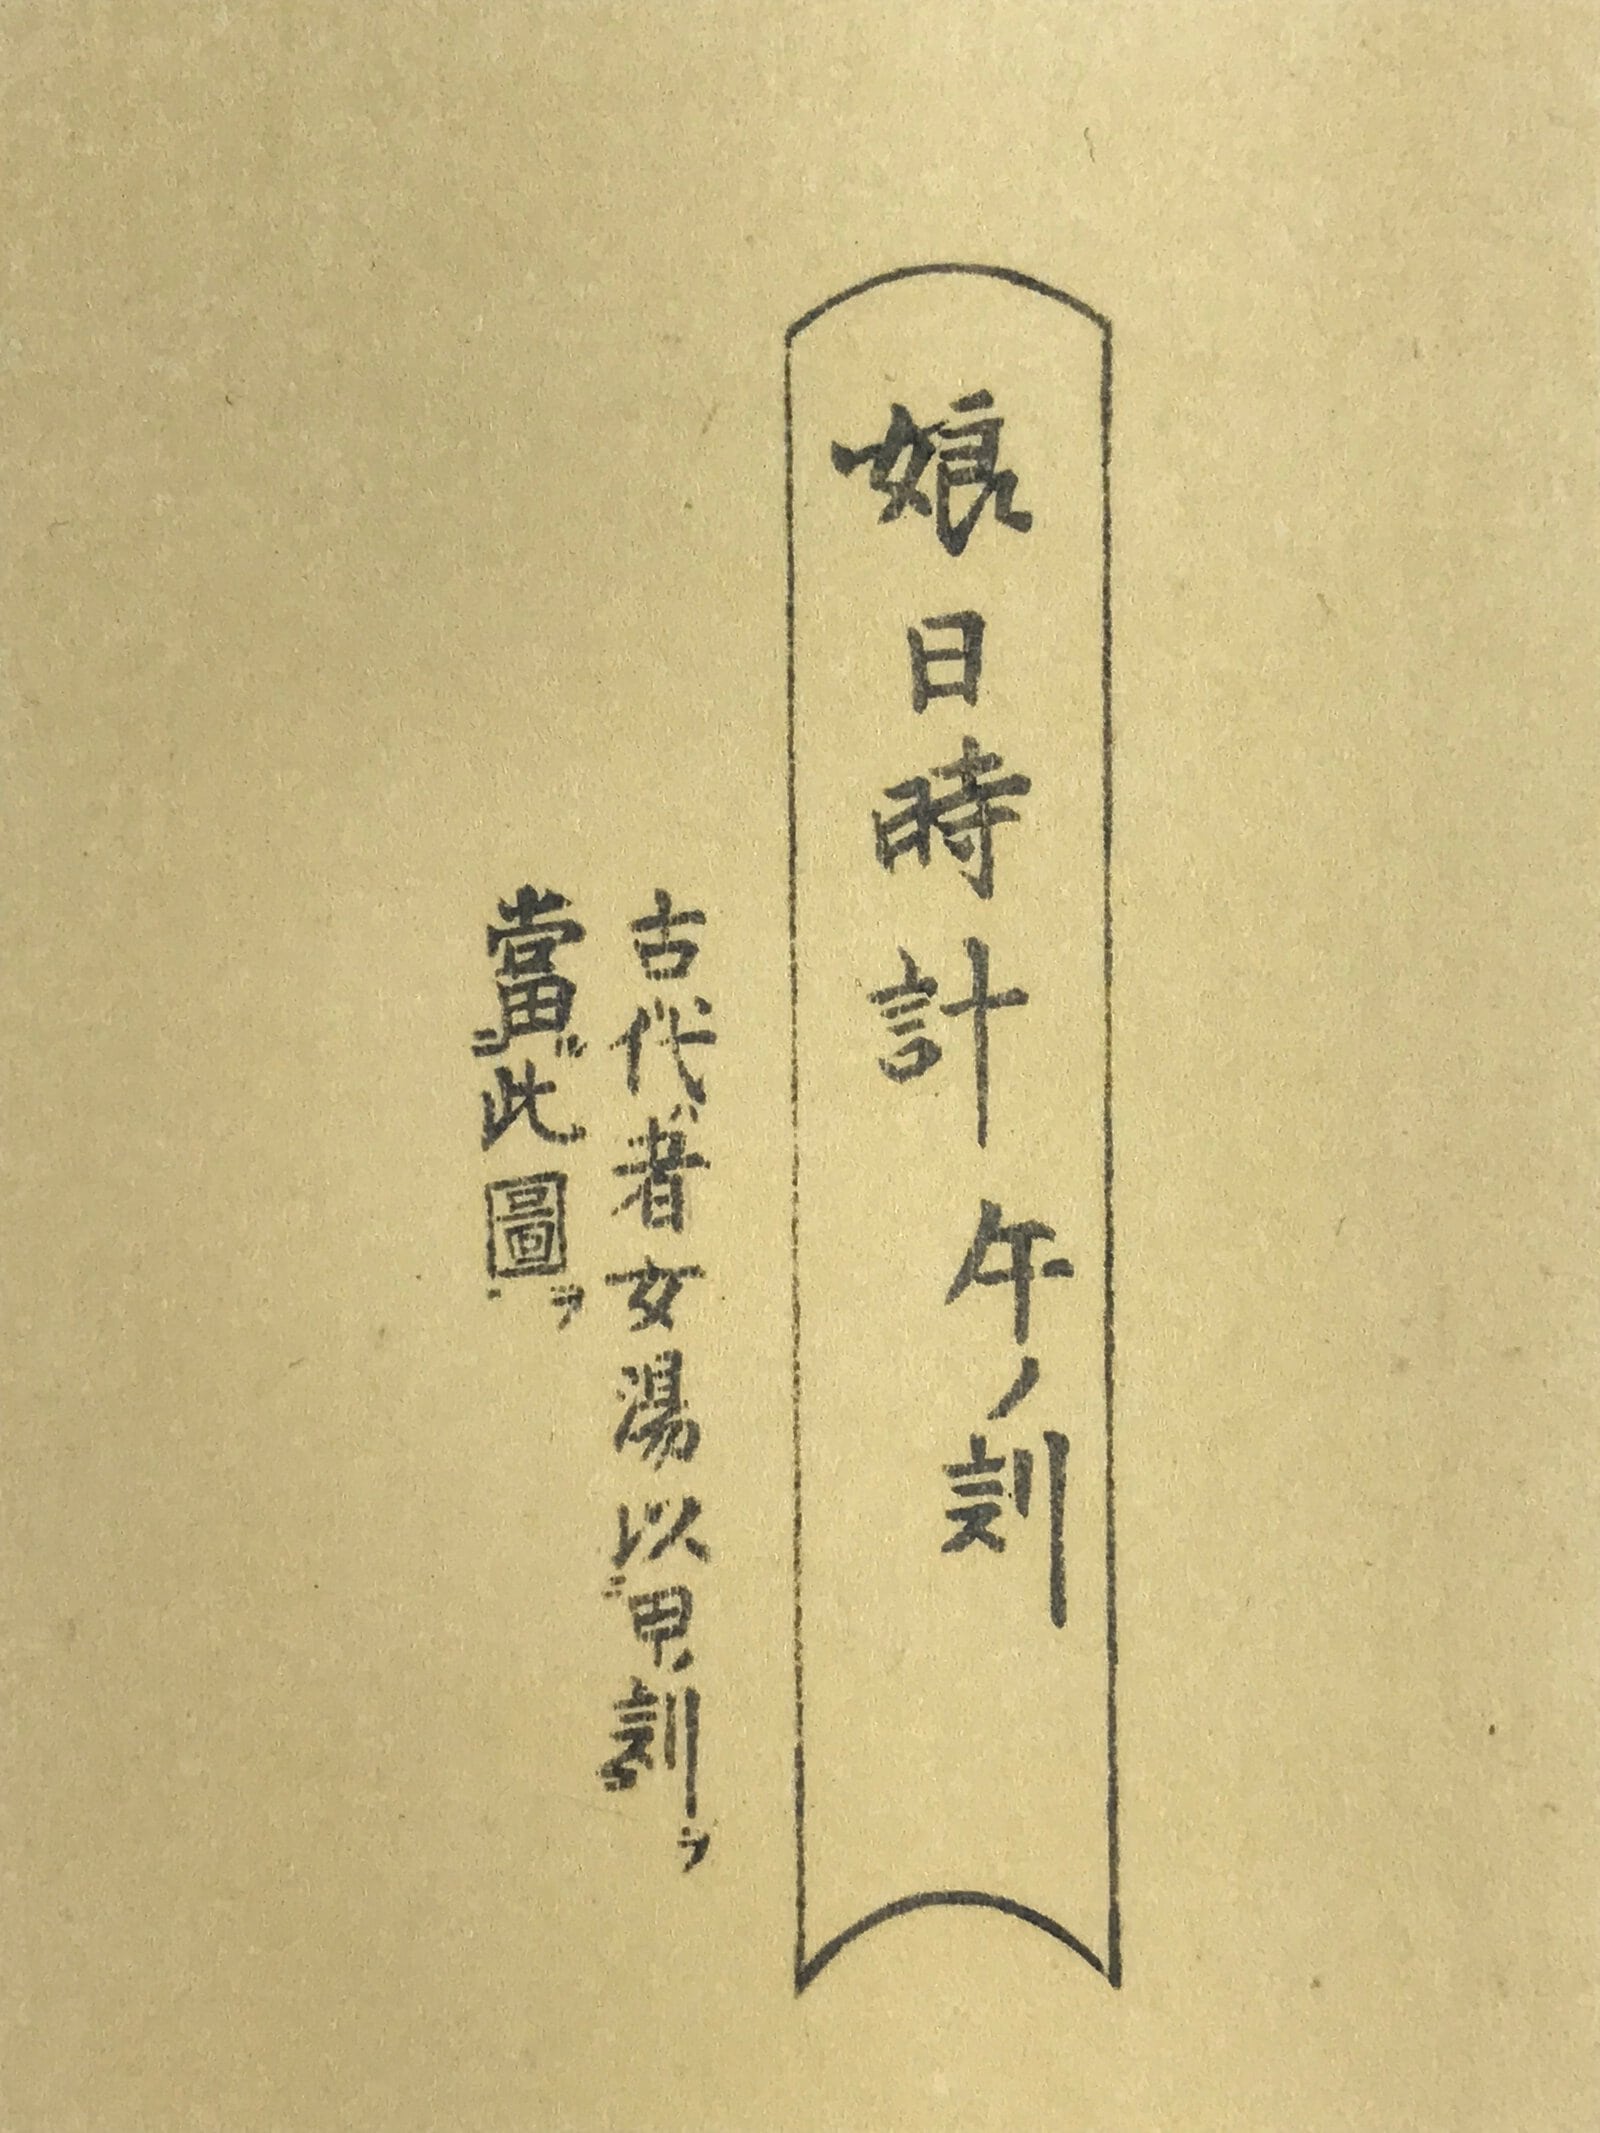 娘日時計 午ノ刻
古代者女湯以甲刻ヲ
當此圖ヲ